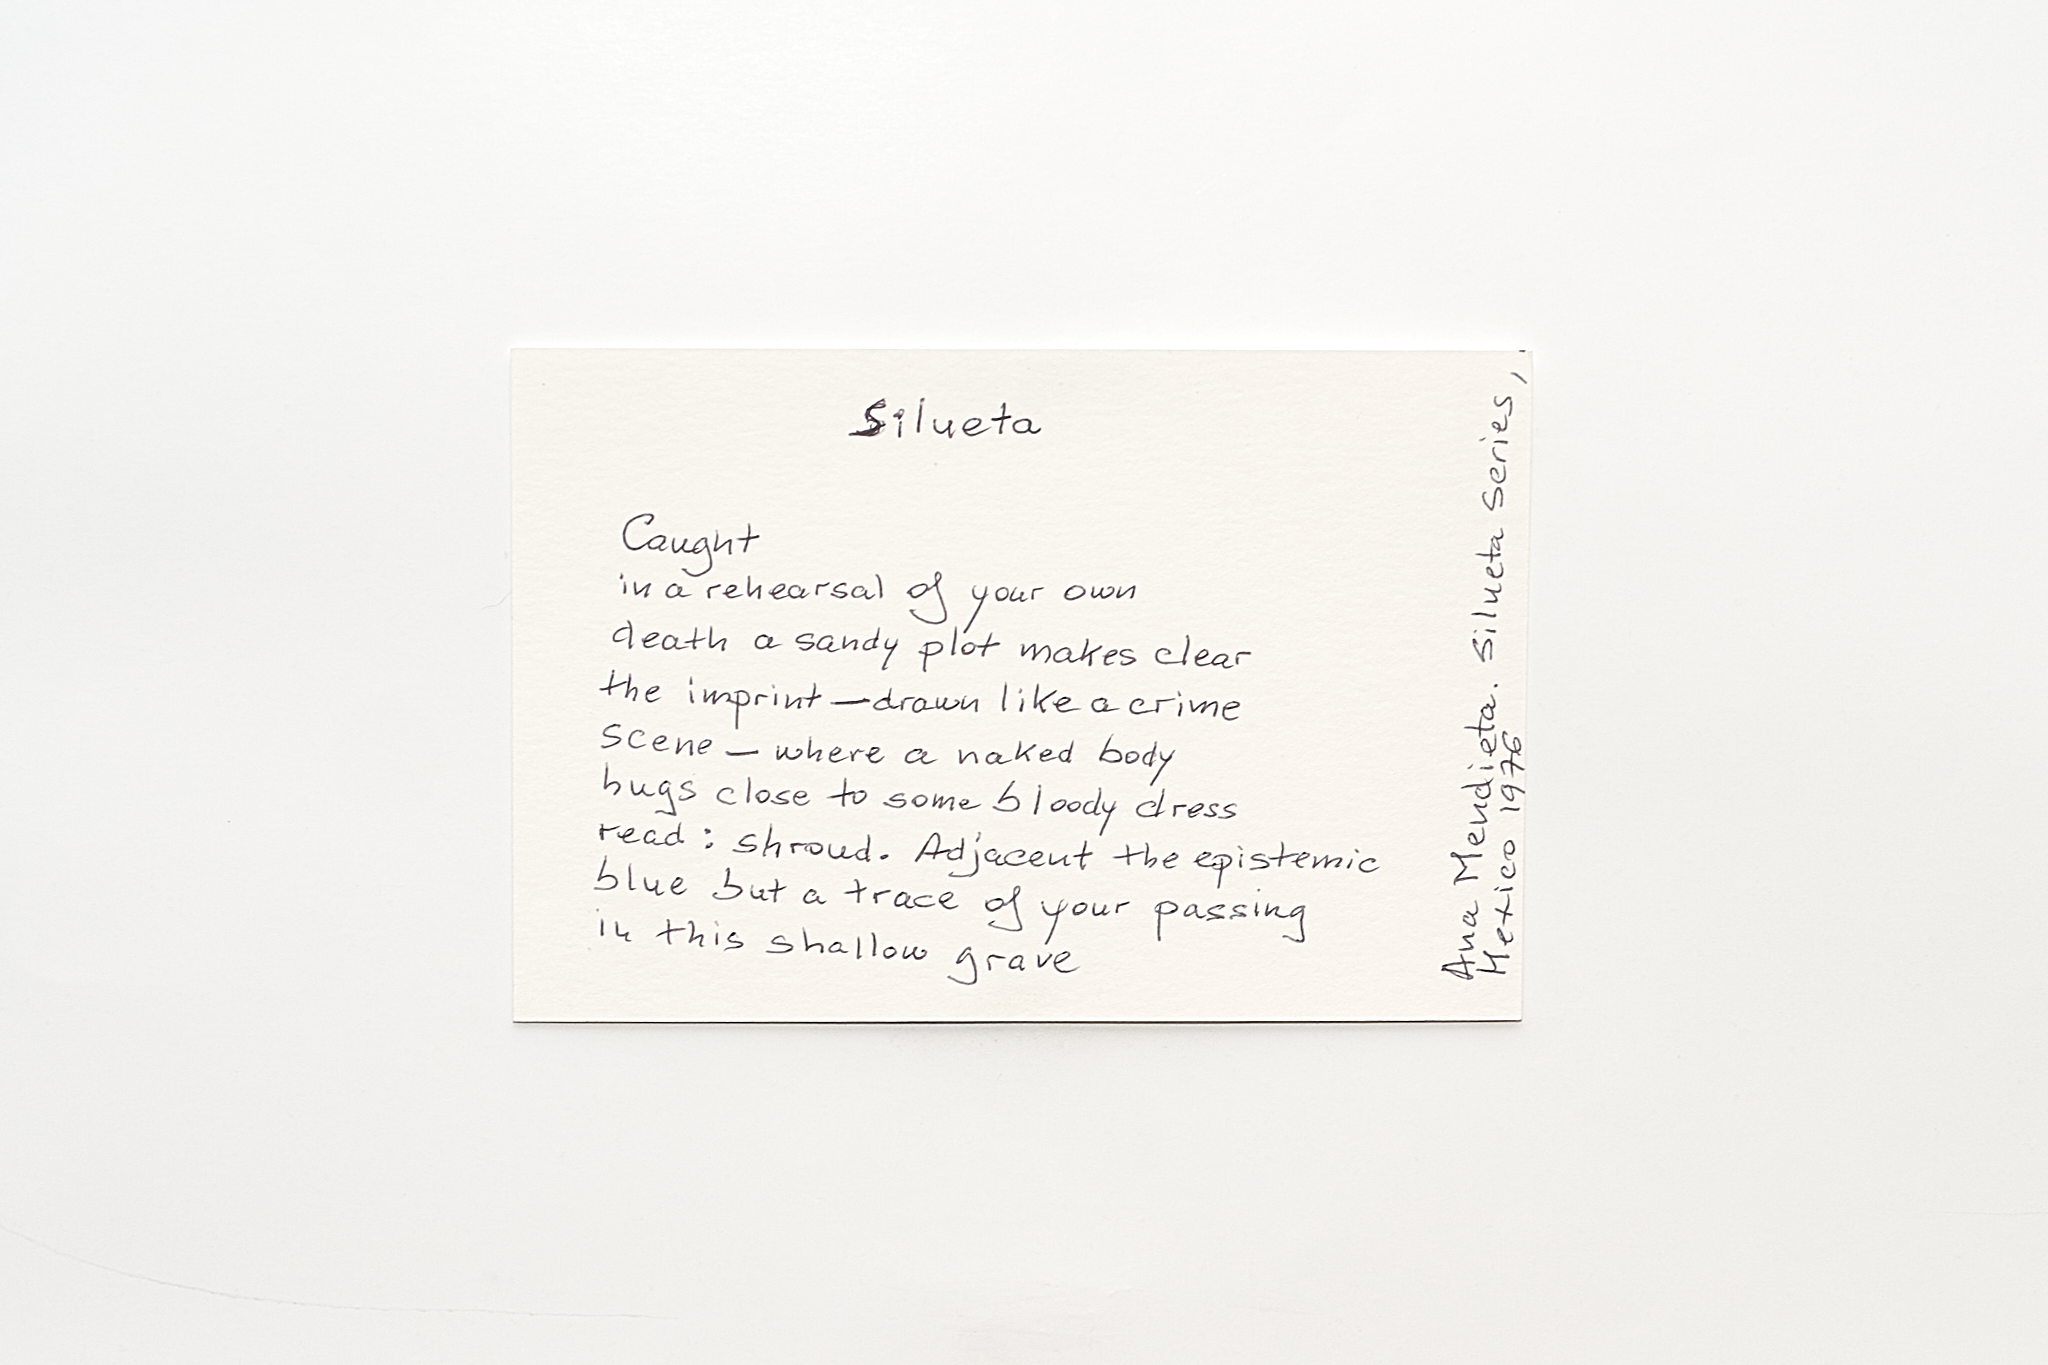 Silueta
Caught
in a rehearsal of your own
death a sandy plot makes clear
the imprint—drawn like a crime
scene—where a naked body
hugs close to some bloody dress
read: shroud. Adjacent the epistemic
blue but a trace of your passing
in this shallow grave
Ana Mendieta. Silueta Series,
Mexico 1976